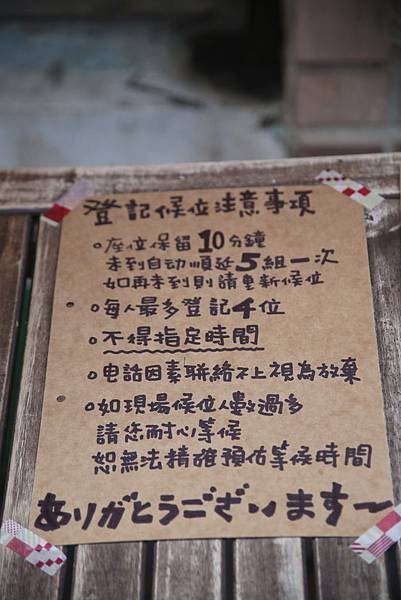 登記候位注意事項
○座位保留10分鐘
未到自动順延5組一次
如再未到則請重新候位
○每人最多登記4位
○不得指定時間
○电話因素联絡不上視為放棄
○如現場候位人數過多
請您耐心等候
恕無法精確預估等候時間
ありがとうございます～